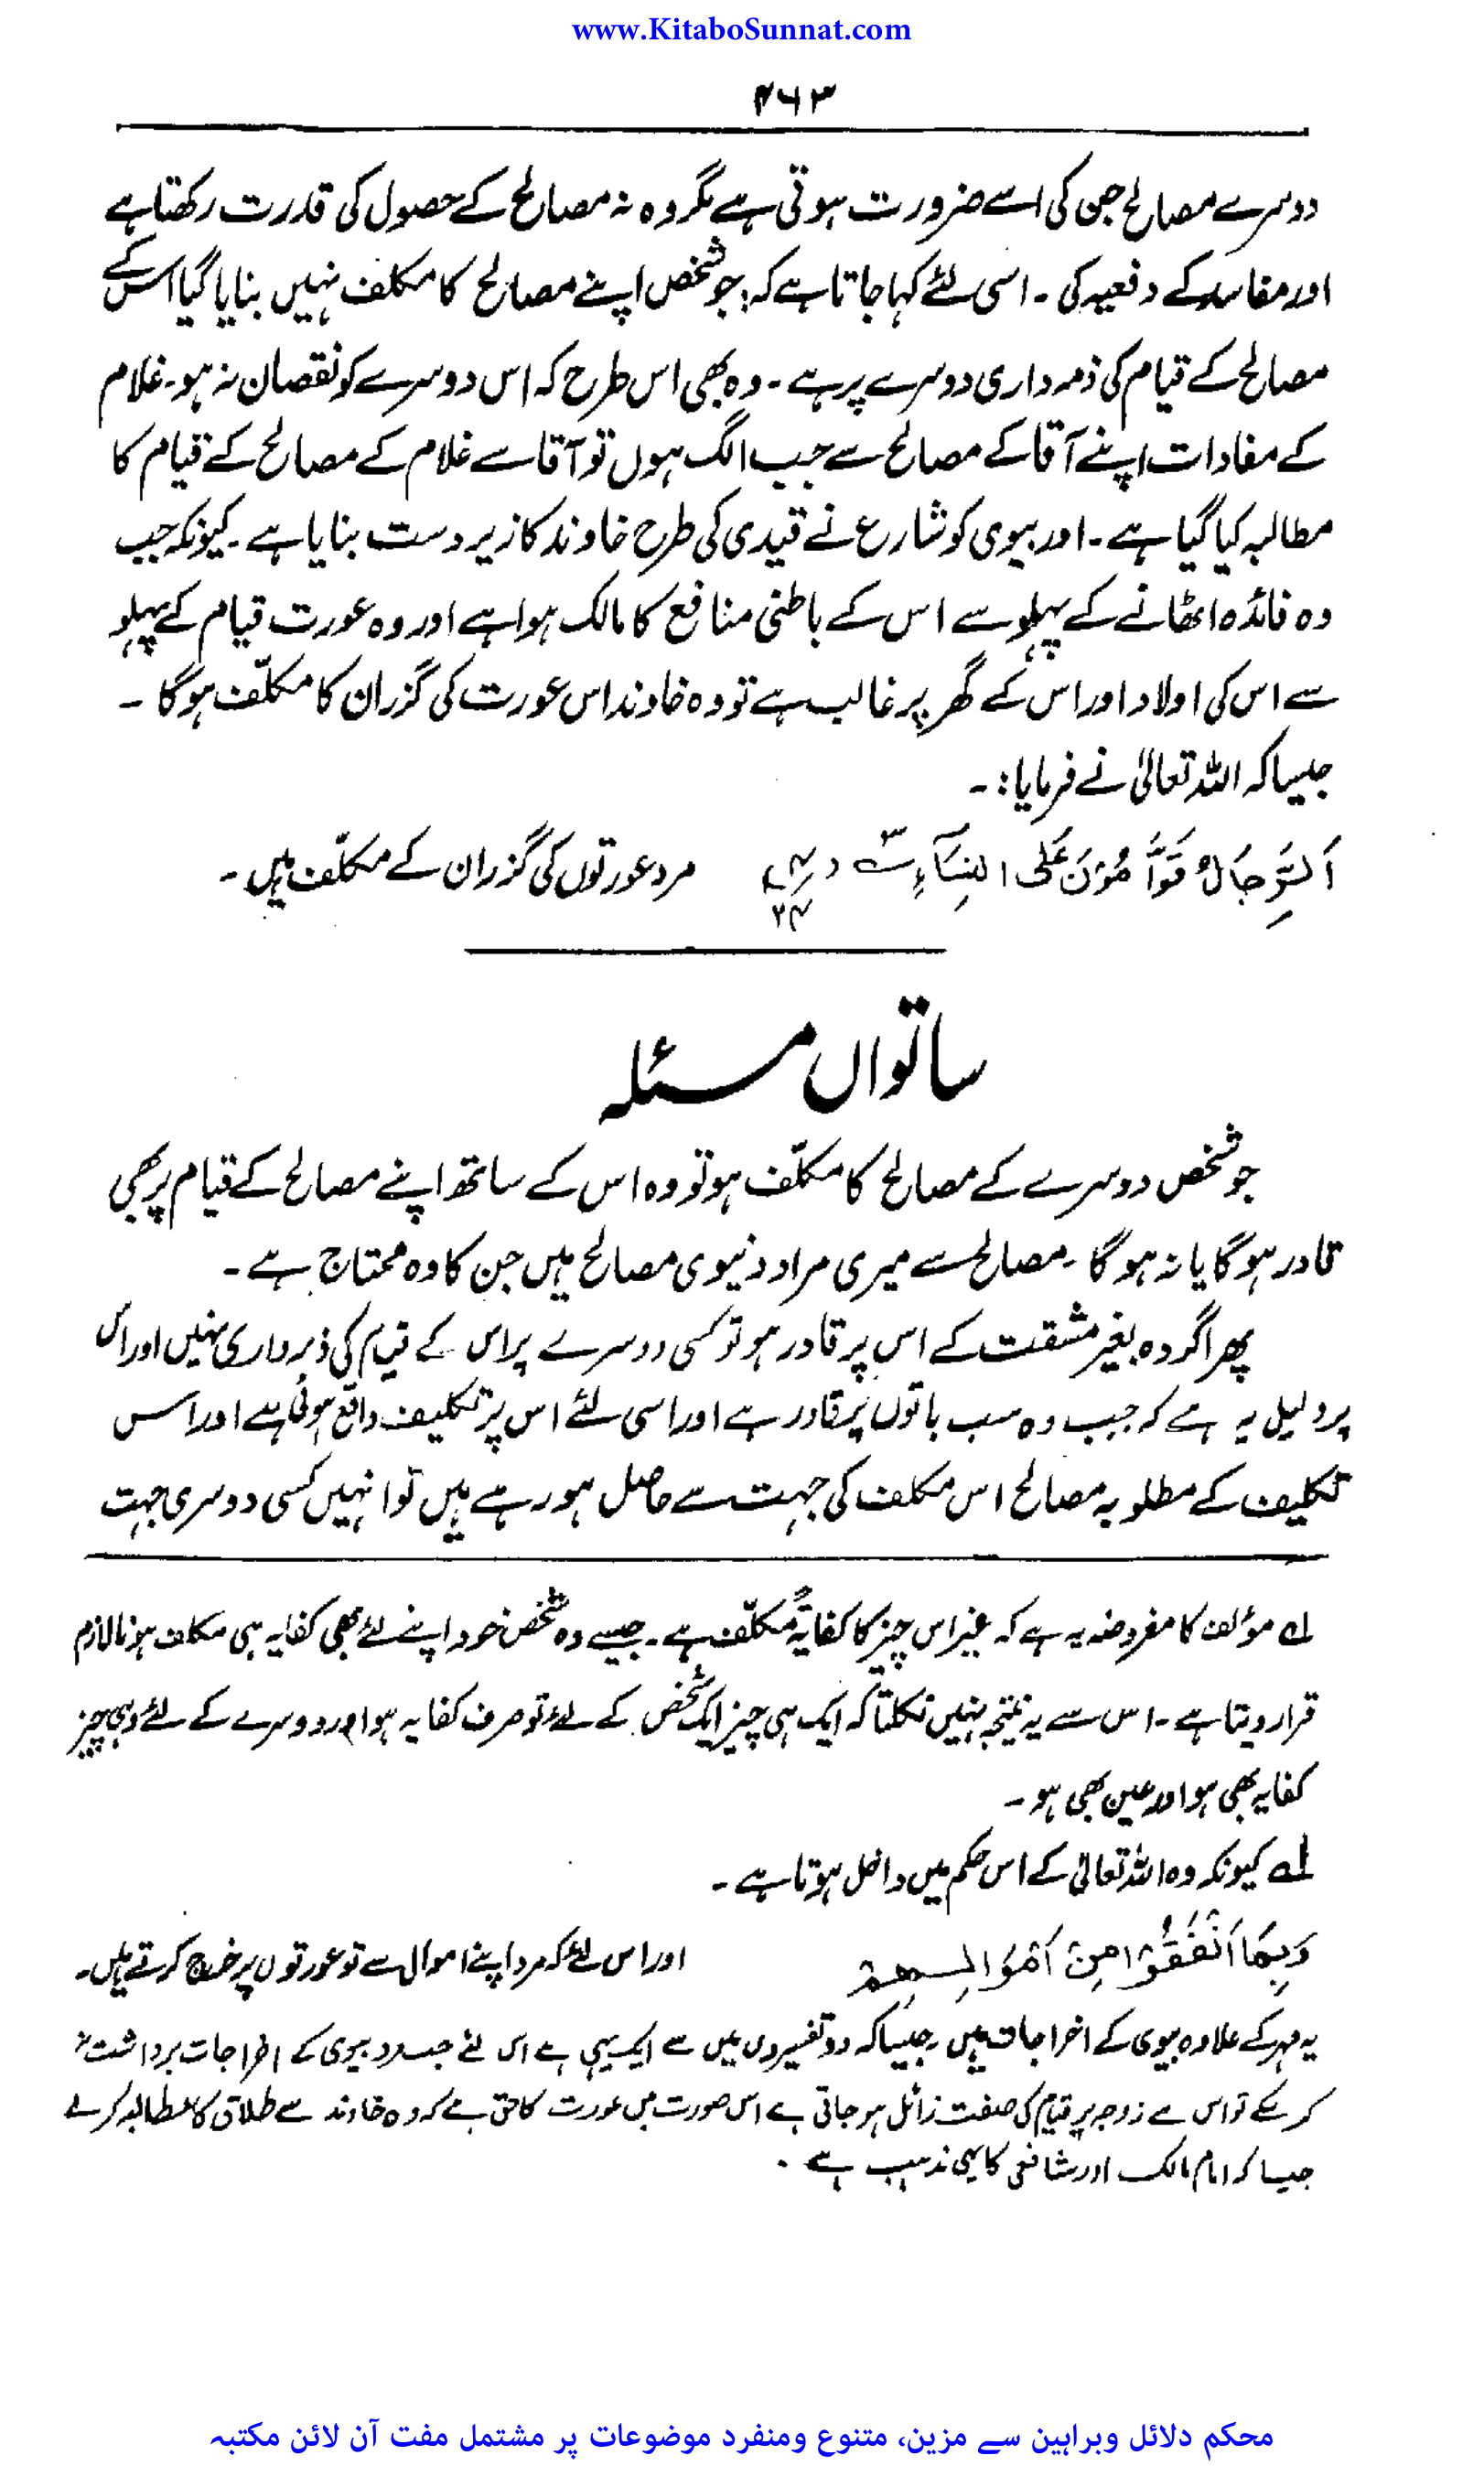 www.KitaboSunnat.com
۴۶۳
دوسرے مصالح جن کی اسے ضرورت ہوتی ہے مگر وہ نہ مصالح کے حصول کی قدرت رکھتا ہے
اور مفاسد کے دفعیہ کی ۔ اسی لئے کہا جاتا ہے کہ: جو شخص اپنے مصالح کا مکلف نہیں بنایا گیا اس کے
مصالح کے قیام کی ذمہ داری دوسرے پر ہے ۔ وہ بھی اس طرح کہ اس دوسرے کو نقصان نہ ہو۔ غلام
کے مفادات اپنے آقا کے مصالح سے جب الگ ہوں تو آقا سے غلام کے مصالح کے قیام کا
مطالبہ کیا گیا ہے ۔ اور بیوی کو شارع نے قیدی کی طرح خاوند کا زیر دست بنایا ہے ۔ کیونکہ جب
وہ فائدہ اٹھانے کے پہلو سے اس کے باطنی منافع کا مالک ہوا ہے اور وہ عورت قیام کے پہلو
سے اس کی اولاد اور اس کے گھر پر غالب ہے تو وہ خاوند اس عورت کی گزران کا مکلّف ہو گا ۔
جیسا کہ اللہ تعالیٰ نے فرمایا : ۔
اَلرِّجَالُ قَوَّامُوْنَ عَلَى النِّسَآءِ ۳؎ (۴/۳۴) مرد عورتوں کی گزران کے مکلّف ہیں ۔
ساتواں مسئلہ
جو شخص دوسرے کے مصالح کا مکلّف ہو تو وہ اس کے ساتھ اپنے مصالح کے قیام پر بھی
قادر ہو گا یا نہ ہو گا ۔ مصالح سے میری مراد دنیوی مصالح ہیں جن کا وہ محتاج ہے ۔
پھر اگر وہ بغیر مشقت کے اس پر قادر ہو تو کسی دوسرے پر اس کے قیام کی ذمہ داری نہیں اور اس
پر دلیل یہ ہے کہ جب وہ سب باتوں پر قادر ہے اور اسی لئے اس پر تکلیف واقع ہوئی ہے اور اس
تکلیف کے مطلوبہ مصالح اس مکلف کی جہت سے حاصل ہو رہے ہیں تو انہیں کسی دوسری جہت
۱؎ مؤلف کا مفروضہ یہ ہے کہ غیر اس چیز کا کفایۃً مکلّف ہے ۔ جیسے وہ شخص خود اپنے لئے بھی کفایہ ہی مکلف ہونا لازم
قرار دیتا ہے ۔ اس سے یہ نتیجہ نہیں نکلتا کہ ایک ہی چیز ایک شخص کے لئے تو صرف کفایہ ہو اور دوسرے کے لئے وہی چیز
کفایہ بھی ہو اور عین بھی ہو ۔
۱؎ کیونکہ وہ اللہ تعالیٰ کے اس حکم میں داخل ہوتا ہے ۔
وَبِمَا اَنْفَقُوْا مِنْ اَمْوَالِهِمْ اور اس لئے کہ مرد اپنے اموال سے تو عورتوں پر خرچ کرتے ہیں۔
یہ مہر کے علاوہ بیوی کے اخراجات ہیں ۔ جیسا کہ دو تفسیروں میں سے ایک یہی ہے اس لئے جب مرد بیوی کے اخراجات برداشت نہ
کر سکے تو اس سے زوجہ پر قیام کی صفت زائل ہو جاتی ہے اس صورت میں عورت کا حق ہے کہ وہ خاوند سے طلاق کا مطالبہ کرے
جیسا کہ امام مالک اور شافعی کا یہی مذہب ہے ۔
محکم دلائل وبراہین سے مزین، متنوع ومنفرد موضوعات پر مشتمل مفت آن لائن مکتبہ